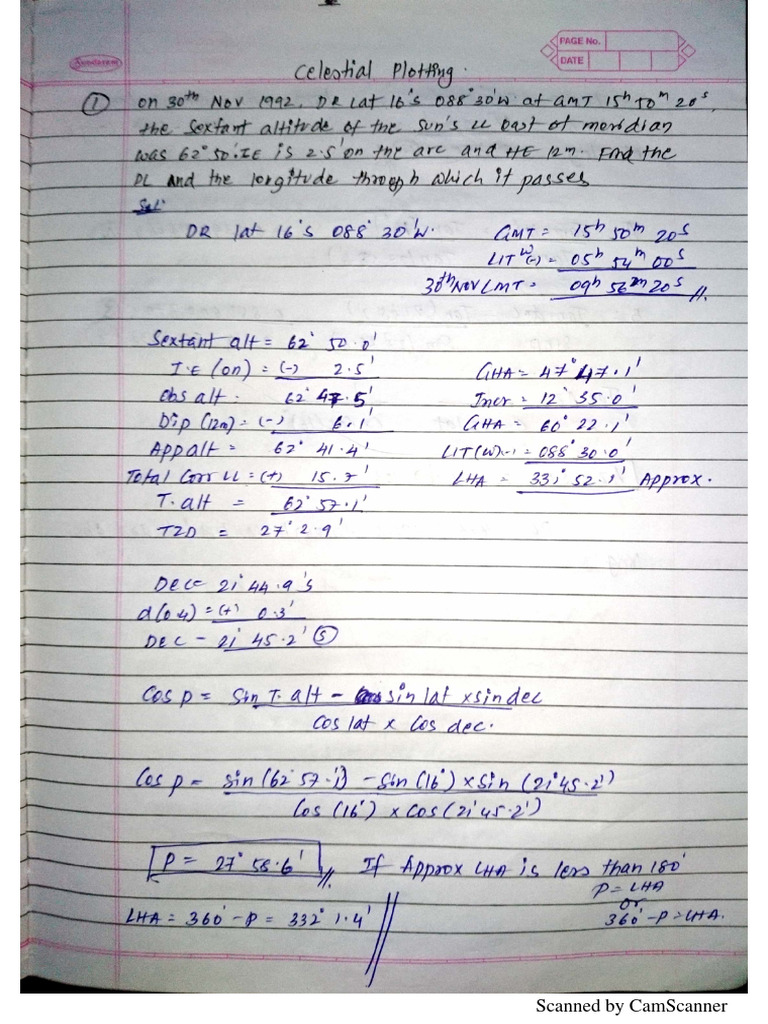 Sundaram
PAGE No.
DATE
Celestial Plotting.
① on 30th Nov 1992, DR Lat 16°S 088°30'W at GMT 15h 50m 20s,
the Sextant altitude of the Sun's LL East of meridian
was 62°50'. IE is 2.5' on the arc and HE 12m. Find the
PL and the longitude through which it passes
Sol:
DR lat 16°S 088° 30'W.
GMT = 15h 50m 20s
LIT(W)(-) = 05h 54m 00s
30th Nov LMT = 09h 56m 20s //.
Sextant alt = 62° 50.0'
I.E (on) = (-) 2.5'
Obs alt. = 62° 47.5'
Dip (12m) = (-) 6.1'
App alt = 62° 41.4'
Total Corr LL = (+) 15.7'
T. alt = 62° 57.1'
TZD = 27° 2.9'
GHA = 47° 47.1'
Incr = 12° 35.0'
GHA = 60° 22.1'
LIT(W)(-) = 088° 30.0'
LHA = 331° 52.1' Approx.
Dec = 21° 44.9's
d(0.4) = (+) 0.3'
Dec - 21° 45.2' Ⓢ
Cos p = Sin T. alt - sin lat x sin dec
Cos lat x Cos dec.
Cos p = sin (62° 57.1') - Sin (16°) x Sin (21° 45.2')
Cos (16°) x Cos (21° 45.2')
P = 27° 58.6' //. If Approx LHA is less than 180°
P = LHA
or
360° - P = LHA.
LHA = 360° - P = 332° 1.4' //
Scanned by CamScanner